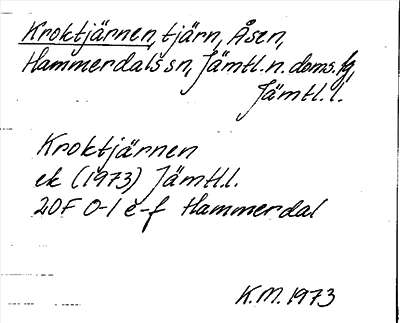 Kroktjärnen, tjärn, Åsen,
Hammerdals sn, Jämtl. n. doms. fg,
Jämtl. l.
Kroktjärnen
ek (1973) Jämtl.l.
20F 0-1 e-f Hammerdal
K.M. 1973